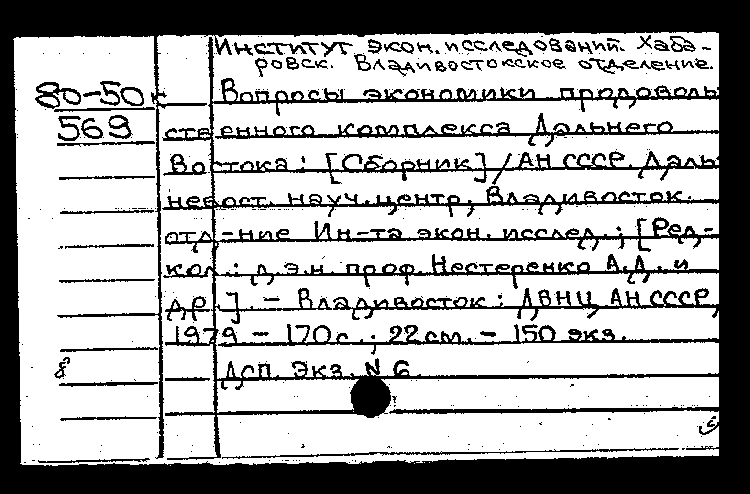 Институт экон. исследований. Хаба-
ровск. Владивостокское отделение.
80-50к Вопросы экономики продоволь
569 ственного комплекса Дальнего
Востока: [Сборник]/АН СССР. Даль
невост. науч. центр, Владивосток.
отд-ние Ин-та экон. исслед.; [Ред-
кол.: д.э.н. проф. Нестеренко А.Д. и
др.]. - Владивосток: ДВНЦ АН СССР,
1979 - 170с.; 22см. - 150 экз.
8 Дсп. Экз. N 6.